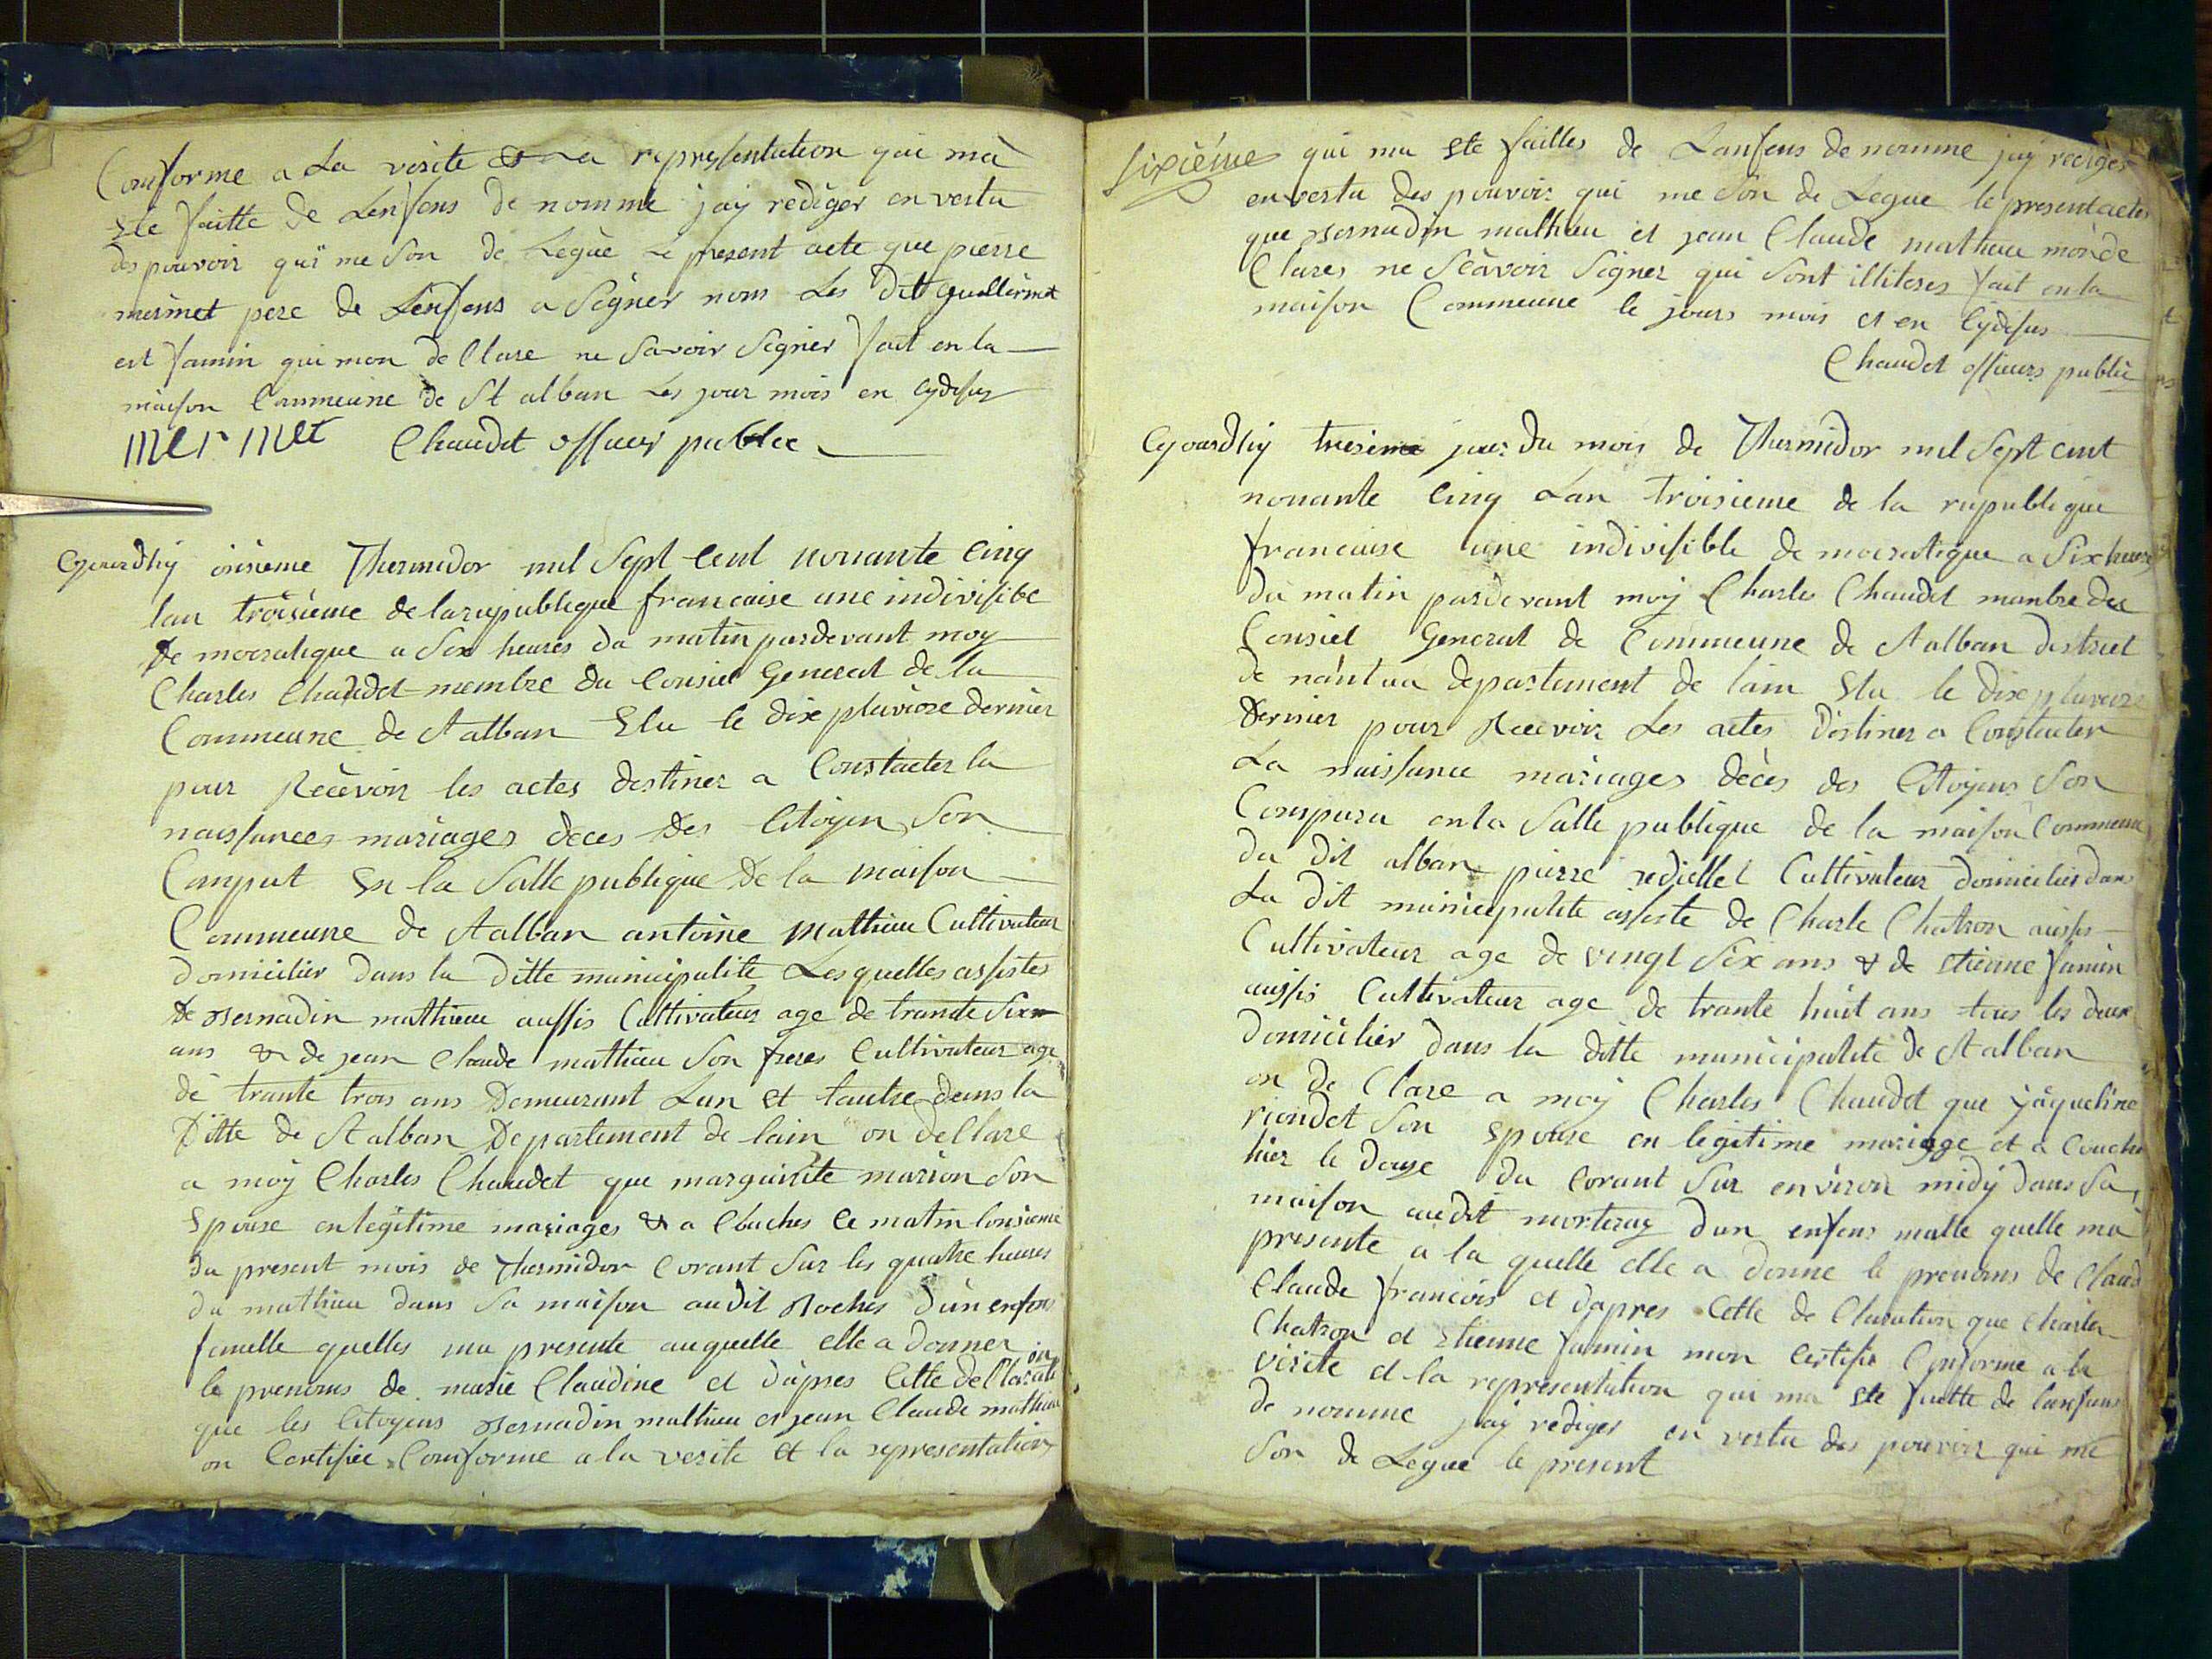 Conforme a La verite & la representation qui mà
ete faitte de Lenfens de nomme jay rediger en vertu
des pouvoir qui me son de Legùe Le present acte que pierre
mermet pere de Lenfens a Signer nom Les ditt guillermet
est famin qui mon de Clare ne Savoir Signer fait en la
maison Commeune de St alban Les jour mois en cydesus
mermet Chaudet officier public
Cejourdhy onsieme Thermidor mil Sept Cent nonante Cinq
lan troisieme de la republique francaise une indivisibe
de mocratique a Six heures du matin pardevant moy
Charles Chaudet membre du Consiel General de la
Commeune de St alban Elu le dix pluviose dernier
pour Recevoir les actes destiner a Constacter la
naissances mariages deces des Citoyen Son
Comput En la Salle publique de la maison
Commeune de St alban antoine Mathieu Cultivateur
domicilier dans la ditte municipalite Lesquelles assistes
de Bernadin mathieu aussis Cultivateur age de trante Six
ans & de jean Claude mathieu Son freres Cultivateur age
de trante trois ans Demeurant Lun et lautre dans la
Ditte de St alban Departement de lain on dellare
a moy Charles Chaudet que margueritte marion Son
Epouse en legitime mariages & a Couches Ce matin lonsieme
du present mois de Thermidor Corant Sur les quatre heures
du mathieu dans Sa maison audit Roches dùn enfens
femelle quelles ma presente auquelle elle a donner
le prenoms de marie Claudine et dapres Cette dellarati on
que les Citoyens Bernadin mathieu et jean Claude mathieu
on Certifiee Comforme a la verite et la representation
Sixiéme qui ma ete failles de Lanfens de nomme jay rediger
en vertu des pouvoir qui me Son de Legue le present actes
que Bernadin mathieu et jean Claude mathieu monde
Clares ne Scavoir Signer qui Sont illiteres fait en la
maison Commeune le jours mois et en Cydesus
Chaudet officiers public
Cejourdhy tresieme jour du mois de Thermidor mil Sept cent
nonante Cinq Lan troisieme de la republique
francaise une indivisible de mocratique a Six heures
du matin pardevant moy Charles Chaudet manbre du
Consiel General de Commeune de St alban district
de nantua departement de lain Elu le dix pluviose
Dernier pour Recevoir Les actes Destiner a Constacter
La naissance mariages dècès des Citoyens Son
Comparu en la Salle publique de la maison Commeune
du dit alban pierre jediellet Cultivateur domicilier dans
La dit municipalite assiste de Charle Chatron aussis
Cultivateur age de vingt Six ans & de etienne famin
aussis Cultivateur age de trante huit ans tous les deux
domicilier dans la ditte municipalité de St alban
on de Clare a moy Charles Chaudet que jaqueline
riondet Son epouse en legitime mariage et a Couche
hier le douze du Corant Sur environ midy dans Sa
maison audit morteray dun enfens malle quelle ma
presente a la quelle elle a donne le prenoms de Claud
Claude francois et dapres Cette de Claration que Charles
Chatron et etienne famin mon Certifie Conforme a la
verite et la representation qui ma ete faitte de lanfans
de nomme jay rediger en vertu des pouvoir qui me
Son de Legue le present